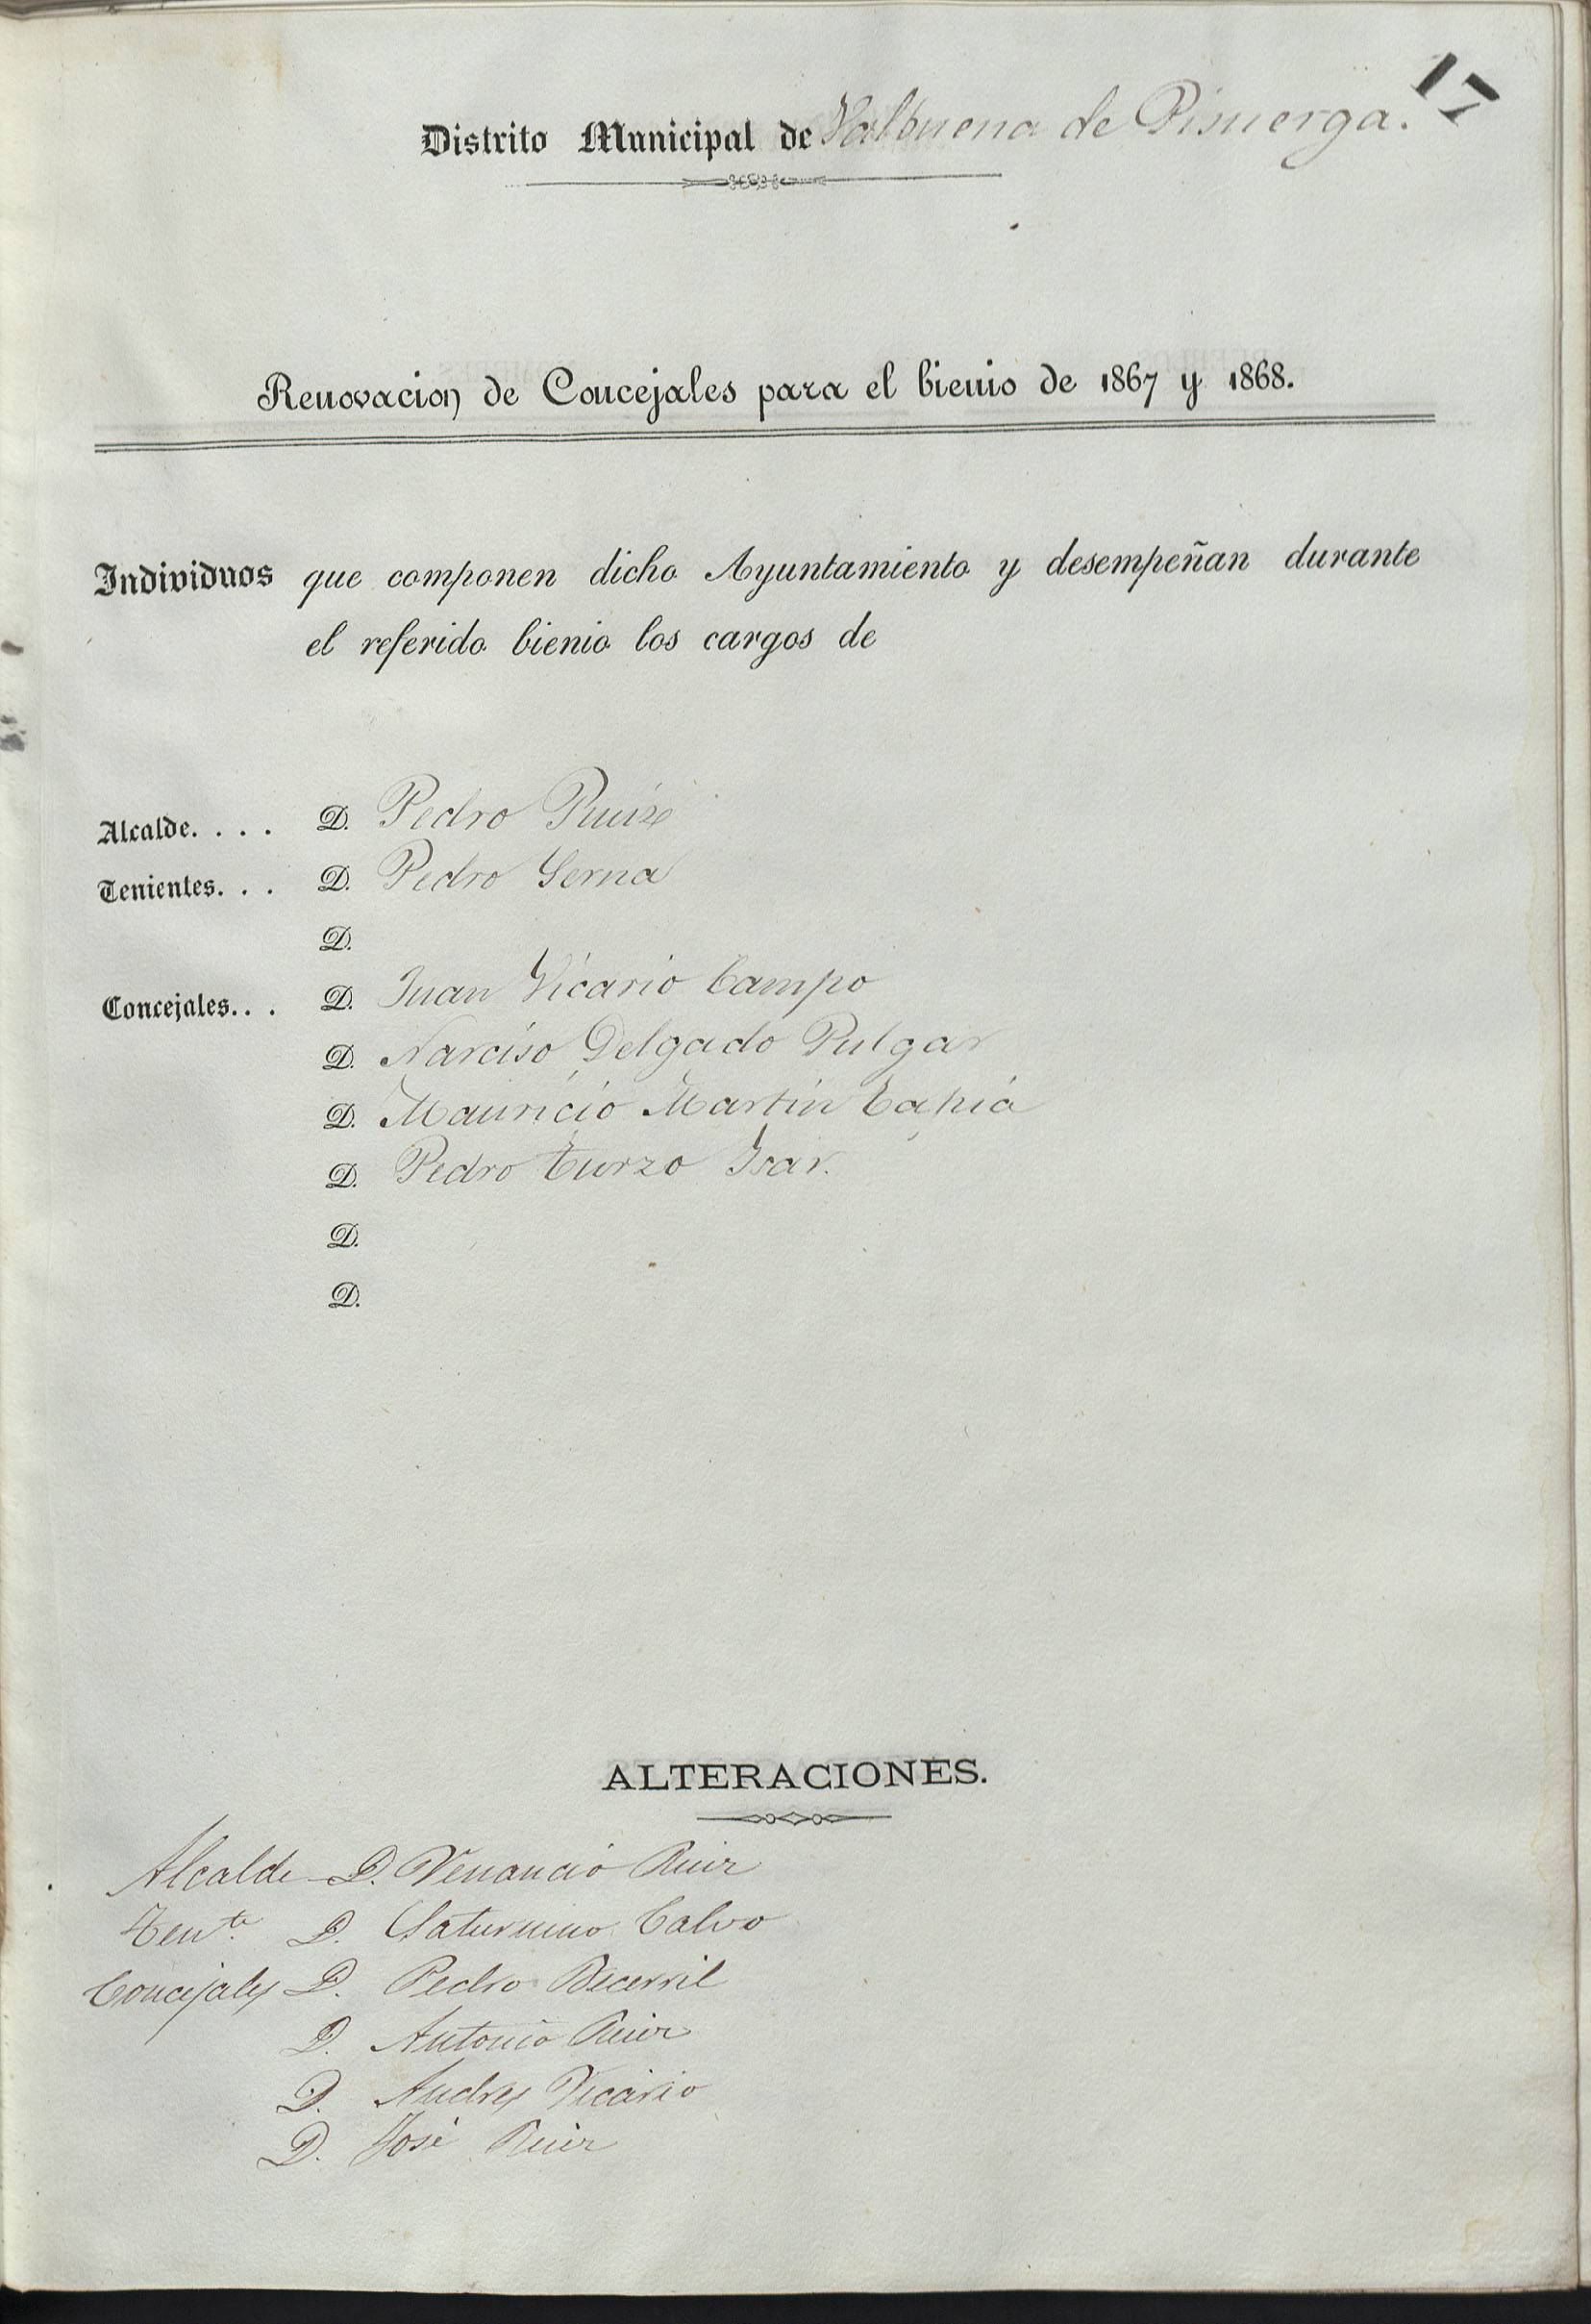 17
Distrito Municipal de Valbuena de Pisuerga.
Renovacion de Concejales para el bienio de 1867 y 1868.
Individuos que componen dicho Ayuntamiento y desempeñan durante
el referido bienio los cargos de
Alcalde. . . . D. Pedro Ruiz
Tenientes. . . D. Pedro Serna
D.
Concejales. . . D. Juan Vicario Campo
D. Narciso Delgado Pulgar
D. Mauricio Martin Tapia
D. Pedro Turzo Isar.
D.
D.
ALTERACIONES.
Alcalde D. Venancio Ruiz
Tente. D. Saturnino Calvo
Concejales D. Pedro Becerril
D. Antonio Ruiz
D. Andres Vicario
D. José Ruiz